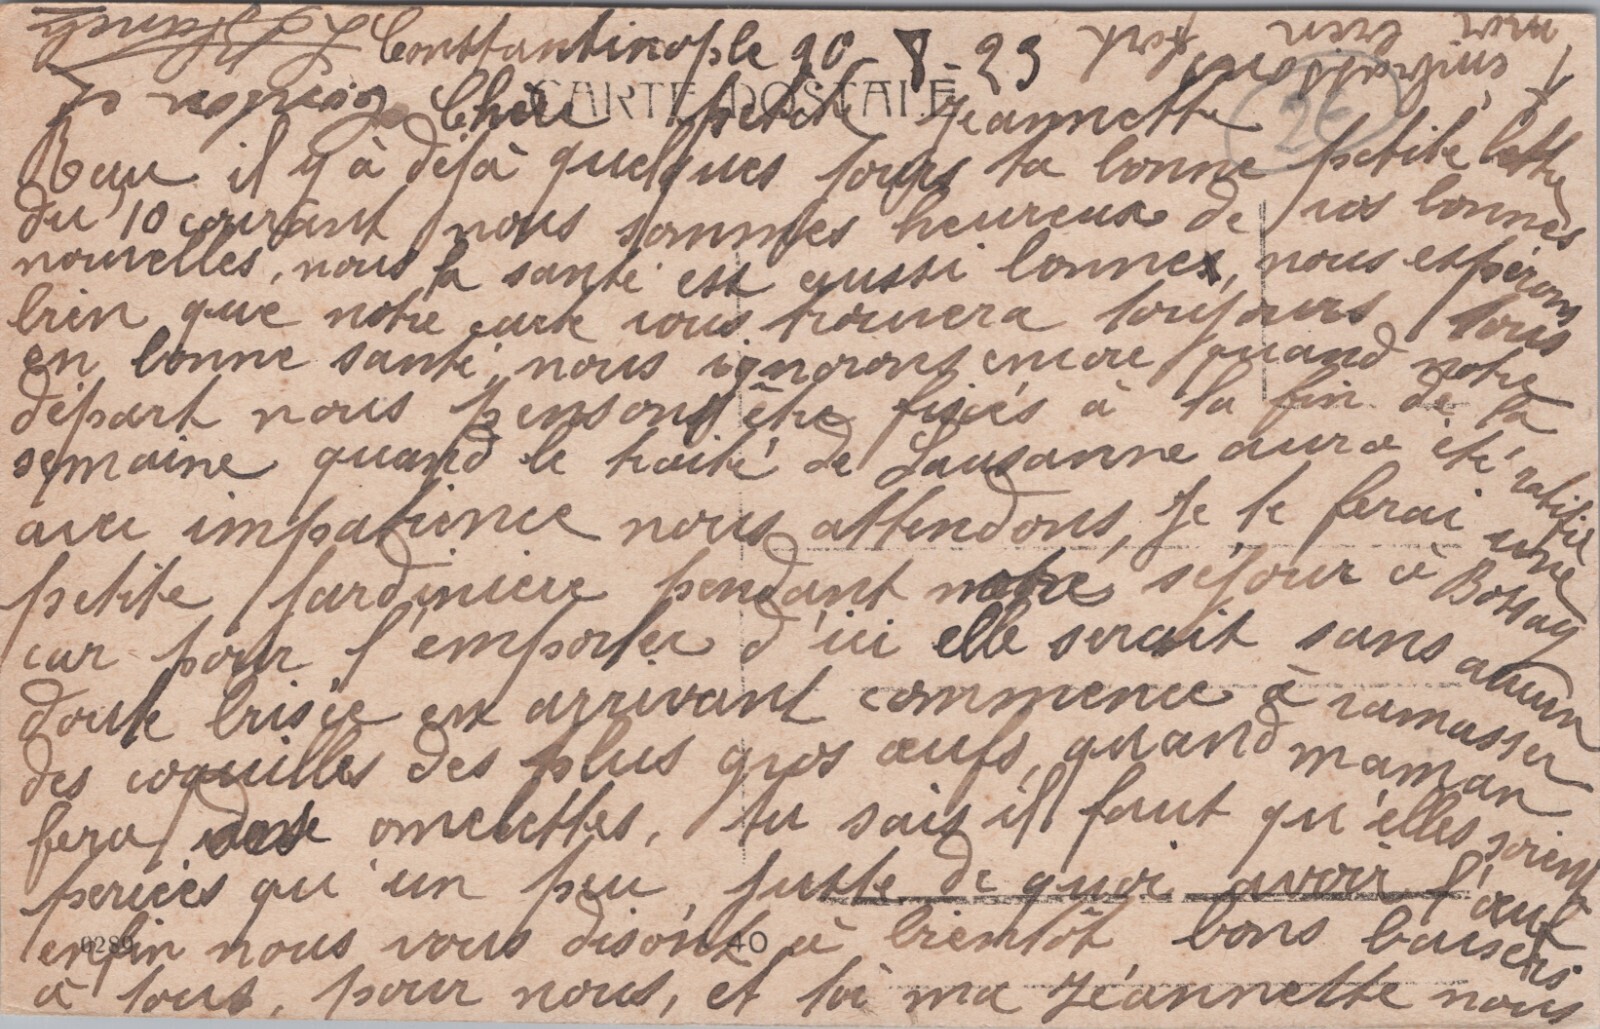 Constantinople 20-8-23
CARTE POSTALE
Chère petite Jeannette
26
Reçu il y à déjà quelques jours ta bonne petite lettre
du 10 courant nous sommes heureux de vos bonnes
nouvelles, nous la santé est aussi bonne, nous espérons
bien que notre carte vous trouvera toujours tous
en bonne santé, nous ignorons encore quand notre
départ nous pensons être fixés à la fin de la
semaine quand le traité de Lausanne aura été ratifié
avec impatience nous attendons, Je te ferai une
petite jardinière pendant notre séjour à Bossay
car pour l'emporter d'ici elle serait sans aucun
doute brisée en arrivant commence à ramasser
des coquilles des plus gros œufs, quand maman
fera des omelettes, tu sais il faut qu'elles soient
percées qu'un peu, juste de quoi avoir l'œuf
enfin nous vous disons à bientôt bons baisers
à tous, pour nous, et toi ma Jéannette nous
t'embrassons
bien fort
40